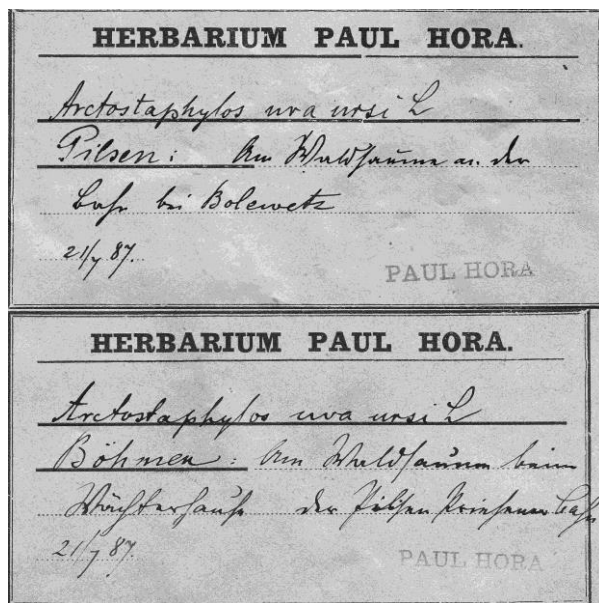 HERBARIUM PAUL HORA.
Arctostaphylos uva ursi L
Pilsen: Am Waldsaume a. der
Bahn bei Bolewetz
21/7 87.
PAUL HORA
HERBARIUM PAUL HORA.
Arctostaphylos uva ursi L
Böhmen: Am Waldsaume beim
Wächterhause der Pilsen Priesener Bahn
21/7 87.
PAUL HORA